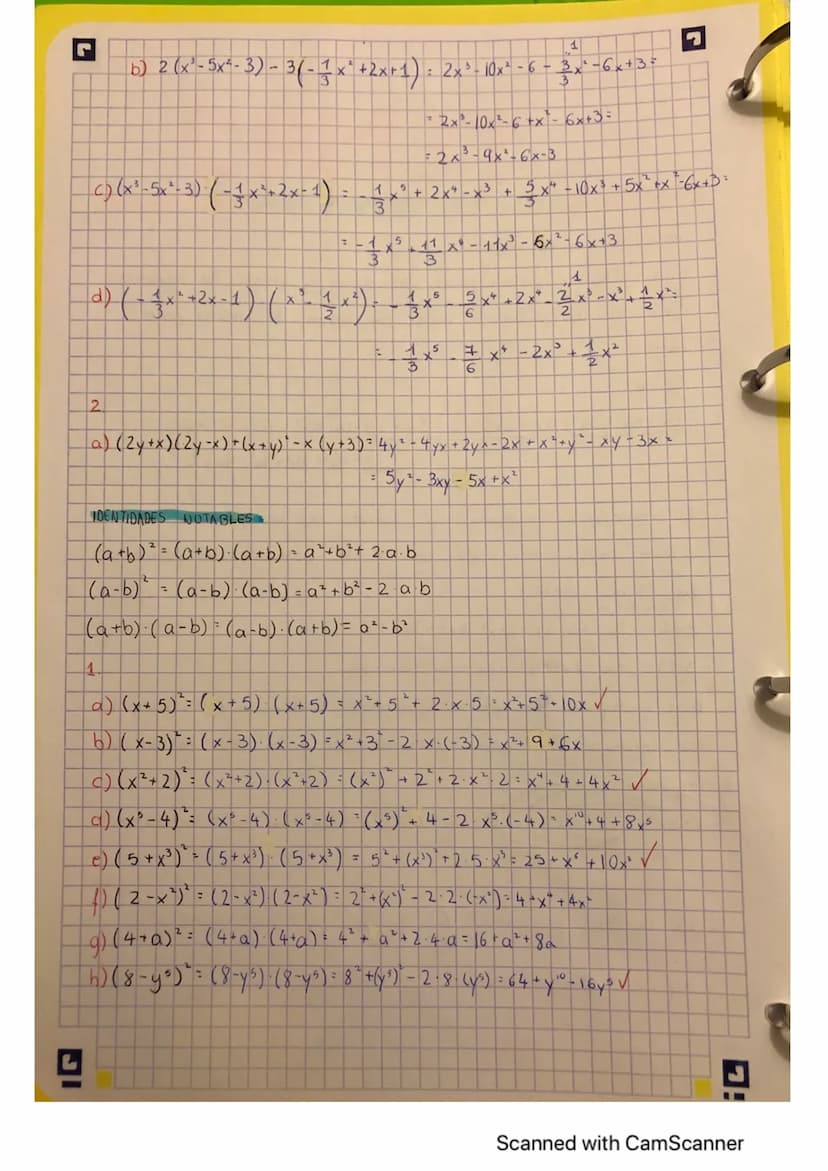 b) 2 (x³ - 5x² - 3) - 3(-1/3 x² + 2x + 1) = 2x³ - 10x² - 6 - 3/3 x² - 6x + 3 =
= 2x³ - 10x² - 6 + x² - 6x + 3 =
= 2x³ - 9x² - 6x - 3
c) (x³ - 5x² - 3) · (-1/3 x² + 2x - 1) = -1/3 x⁵ + 2x⁴ - x³ + 5/3 x⁴ - 10x³ + 5x² + x² - 6x + 3 =
= -1/3 x⁵ + 11/3 x⁴ - 11x³ - 6x² - 6x + 3
d) (-1/3 x² + 2x - 1) · (x³ - 1/2 x²) = -1/3 x⁵ - 5/6 x⁴ + 2x⁴ - 2/2 x³ - x³ + 1/2 x² =
= -1/3 x⁵ - 7/6 x⁴ - 2x³ + 1/2 x²
2.
a) (2y + x)(2y - x) + (x + y)² - x (y + 3) = 4y² - 4yx + 2yx - 2x + x² + y² - xy - 3x =
= 5y² - 3xy - 5x + x²
IDENTIDADES NOTABLES
(a+b)² = (a+b)·(a+b) = a² + b² + 2·a·b
(a-b)² = (a-b)·(a-b) = a² + b² - 2·a·b
(a+b)·(a-b) = (a-b)·(a+b) = a² - b²
1.
a) (x+5)² = (x+5)·(x+5) = x² + 5² + 2·x·5 = x² + 5² + 10x ✓
b) (x-3)² = (x-3)·(x-3) = x² + 3² - 2·x·(-3) = x² + 9 + 6x
c) (x²+2)² = (x²+2)·(x²+2) = (x²)² + 2² + 2·x²·2 = x⁴ + 4 + 4x² ✓
d) (x⁵-4)² = (x⁵-4)·(x⁵-4) = (x⁵)² + 4 - 2·x⁵·(-4) = x¹⁰ + 4 + 8x⁵
e) (5+x³)² = (5+x³)·(5+x³) = 5² + (x³)² + 2·5·x³ = 25 + x⁶ + 10x³ ✓
f) (2-x²)² = (2-x²)·(2-x²) = 2² + (x²)² - 2·2·(-x²) = 4 + x⁴ + 4x²
g) (4+a)² = (4+a)·(4+a) = 4² + a² + 2·4·a = 16 + a² + 8a
h) (8-y⁵)² = (8-y⁵)·(8-y⁵) = 8² + (y⁵)² - 2·8·(y⁵) = 64 + y¹⁰ - 16y⁵ ✓
Scanned with CamScanner